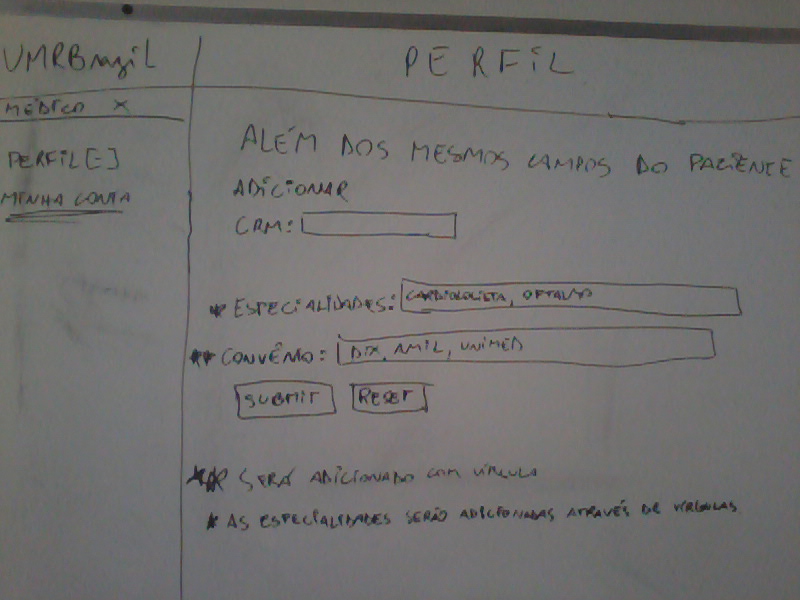 VMRBrazil
PERFIL
MÉDICO X
PERFIL [-]
MINHA CONTA
ALÉM DOS MESMOS CAMPOS DO PACIENTE
ADICIONAR
CRM:
* ESPECIALIDADES: CARDIOLOGISTA, OFTALMO
** CONVÊNIO: DIX, AMIL, UNIMED
SUBMIT RESET
** SERÁ ADICIONADO COM VÍRGULA
* AS ESPECIALIDADES SERÃO ADICIONADAS ATRAVÉS DE VÍRGULAS